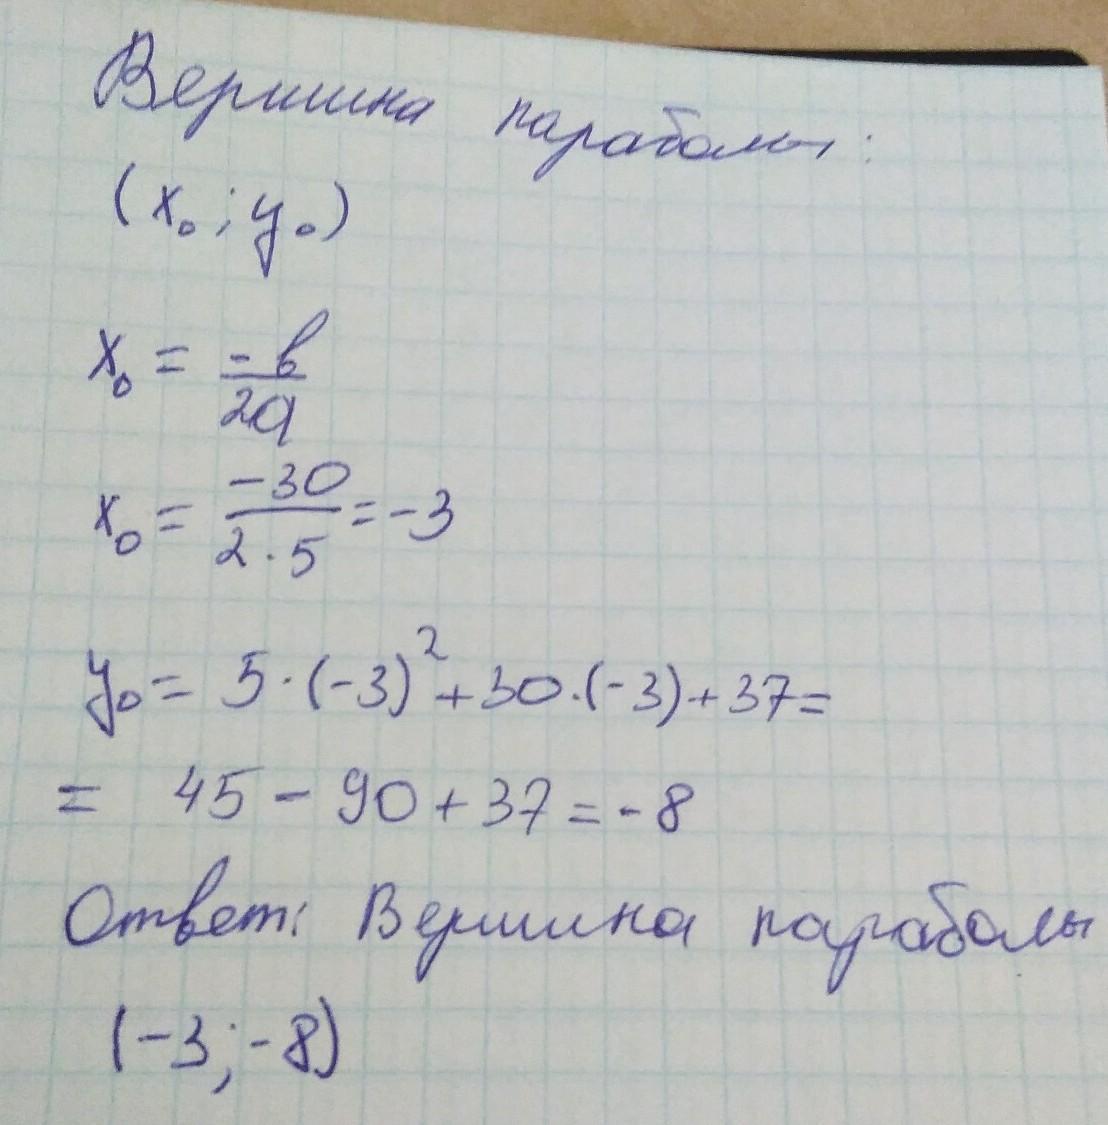 Вершина параболы:
(x₀; y₀)
x₀ = -b/2a
x₀ = -30/2·5 = -3
y₀ = 5·(-3)²+30·(-3)+37=
= 45-90+37=-8
Ответ: Вершина параболы
(-3;-8)